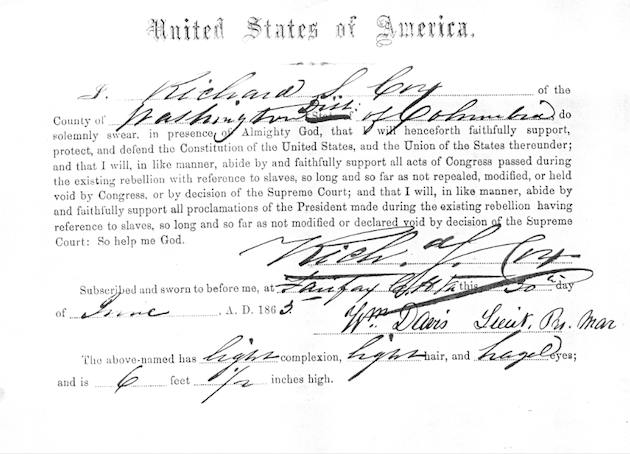 United States of America.
I, Richard S. Cox of the
County of Washington Dist: of Columbia, do
solemnly swear, in presence of Almighty God, that I will henceforth faithfully support,
protect, and defend the Constitution of the United States, and the Union of the States thereunder;
and that I will, in like manner, abide by and faithfully support all acts of Congress passed during
the existing rebellion with reference to slaves, so long and so far as not repealed, modified, or held
void by Congress, or by decision of the Supreme Court; and that I will, in like manner, abide by
and faithfully support all proclamations of the President made during the existing rebellion having
reference to slaves, so long and so far as not modified or declared void by decision of the Supreme
Court: So help me God.
Rich. S. Cox
Subscribed and sworn to before me, at Fairfax C.H. Va this 30th day
of June, A. D. 1865.
Wm Davis Lieut. Pro. Mar
The above-named has light complexion, light hair, and hazel eyes;
and is 6 feet 1/2 inches high.